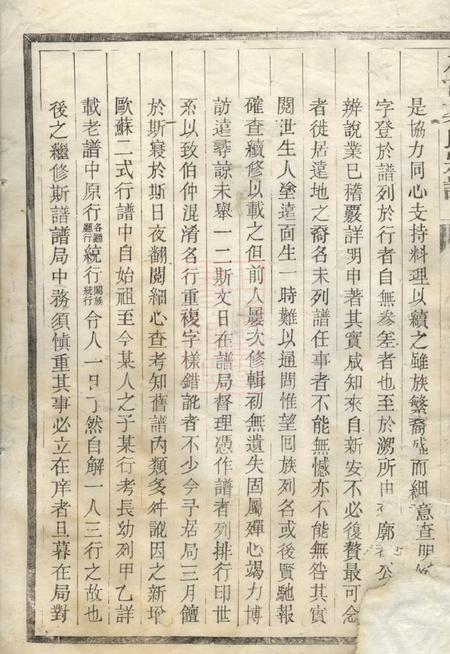 是協力同心支持料理以續之雖族繁裔盛而細意查明
字登於譜列於行者自無參差者也至於溯所由廓公
辨說業已稽覈詳明申著其實咸知來自新安不必復贅最可念
者徙居遠地之裔名未列譜任事者不能無憾亦不能無咎其實
閱世生人塗遠面生一時難以通問惟望同族列名或後賢馳報
確查續修以載之但前人屢次修輯初無遺失固屬殫心竭力博
訪遠尋諒未舉一二斯文日在譜局督理憑作譜者列排行印世
系以致伯仲混淆名行重複字樣錯訛者不少今予居局三月饘
於斯寢於斯日夜翻閱細心查考知舊譜內類多舛說因之新增
歐蘇二式行譜中自始祖至今某人之子某行考長幼列甲乙詳
載老譜中原行各廳廳行統行闔族統行令人一目了然自解一人三行之故也
後之繼修斯譜譜局中務須慎重其事必立在庠者旦暮在局對